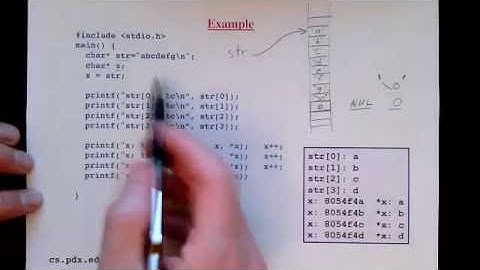 Example
#include <stdio.h>
main() {
char* str="abcdefg\n";
char* x;
x = str;
printf("str[0] %c\n", str[0]);
printf("str[1] %c\n", str[1]);
printf("str[2] %c\n", str[2]);
printf("str[3] %c\n", str[3]);
printf("x: x, *x); x++;
printf("x: x, *x); x++;
printf("x: x, *x); x++;
printf("x: x, *x);
}
str
'\0'
NUL 0
str[0]: a
str[1]: b
str[2]: c
str[3]: d
x: 8054f4a *x: a
x: 8054f4b *x: b
x: 8054f4c *x: c
x: 8054f4d *x: d
cs.pdx.ed